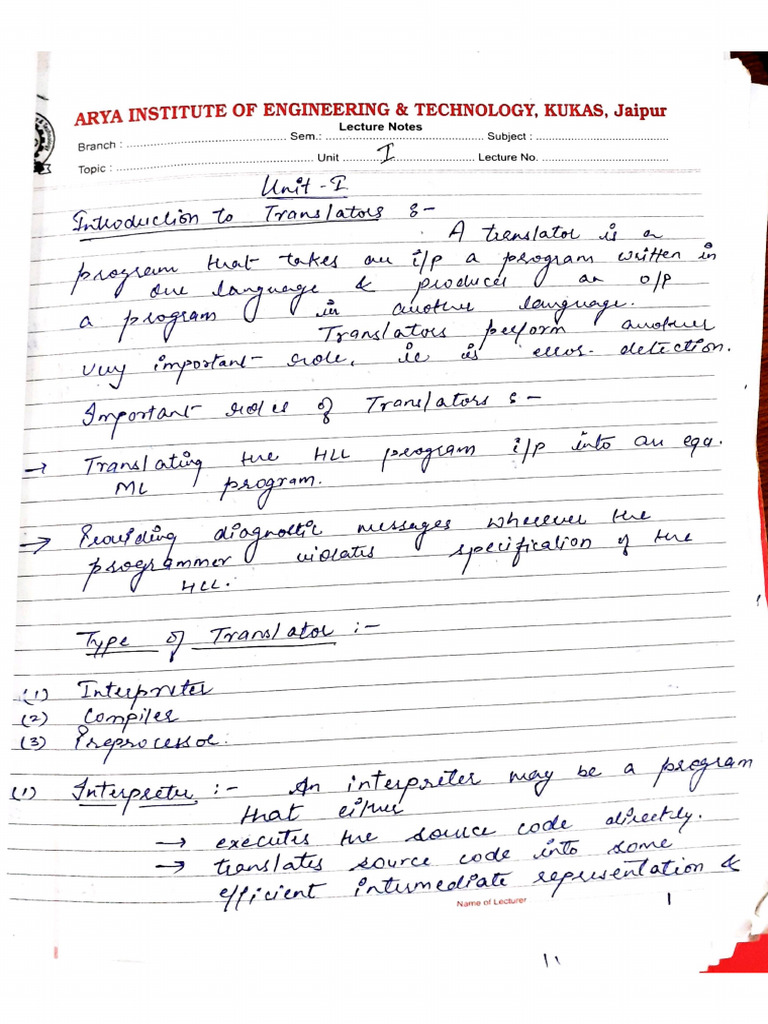 ARYA INSTITUTE OF ENGINEERING & TECHNOLOGY, KUKAS, Jaipur
Lecture Notes
Branch : Sem.: Subject :
Topic : Unit I Lecture No.
Unit - I
Introduction to Translators :-
A translator is a
program that takes an i/p a program written in
one language & produces an o/p
a program in another language.
Translators perform another
very important role, ie is error-detection.
Important roles of Translators :-
→ Translating the HLL program i/p into an equ.
ML program.
→ Providing diagnostic messages wherever the
programmer violates specification of the
HLL.
Type of Translator :-
(1) Interpreter
(2) Compiler
(3) Preprocessor.
(1) Interpreter :- An interpreter may be a program
that either
→ executes the source code directly.
→ translates source code into some
efficient intermediate representation &
Name of Lecturer 1